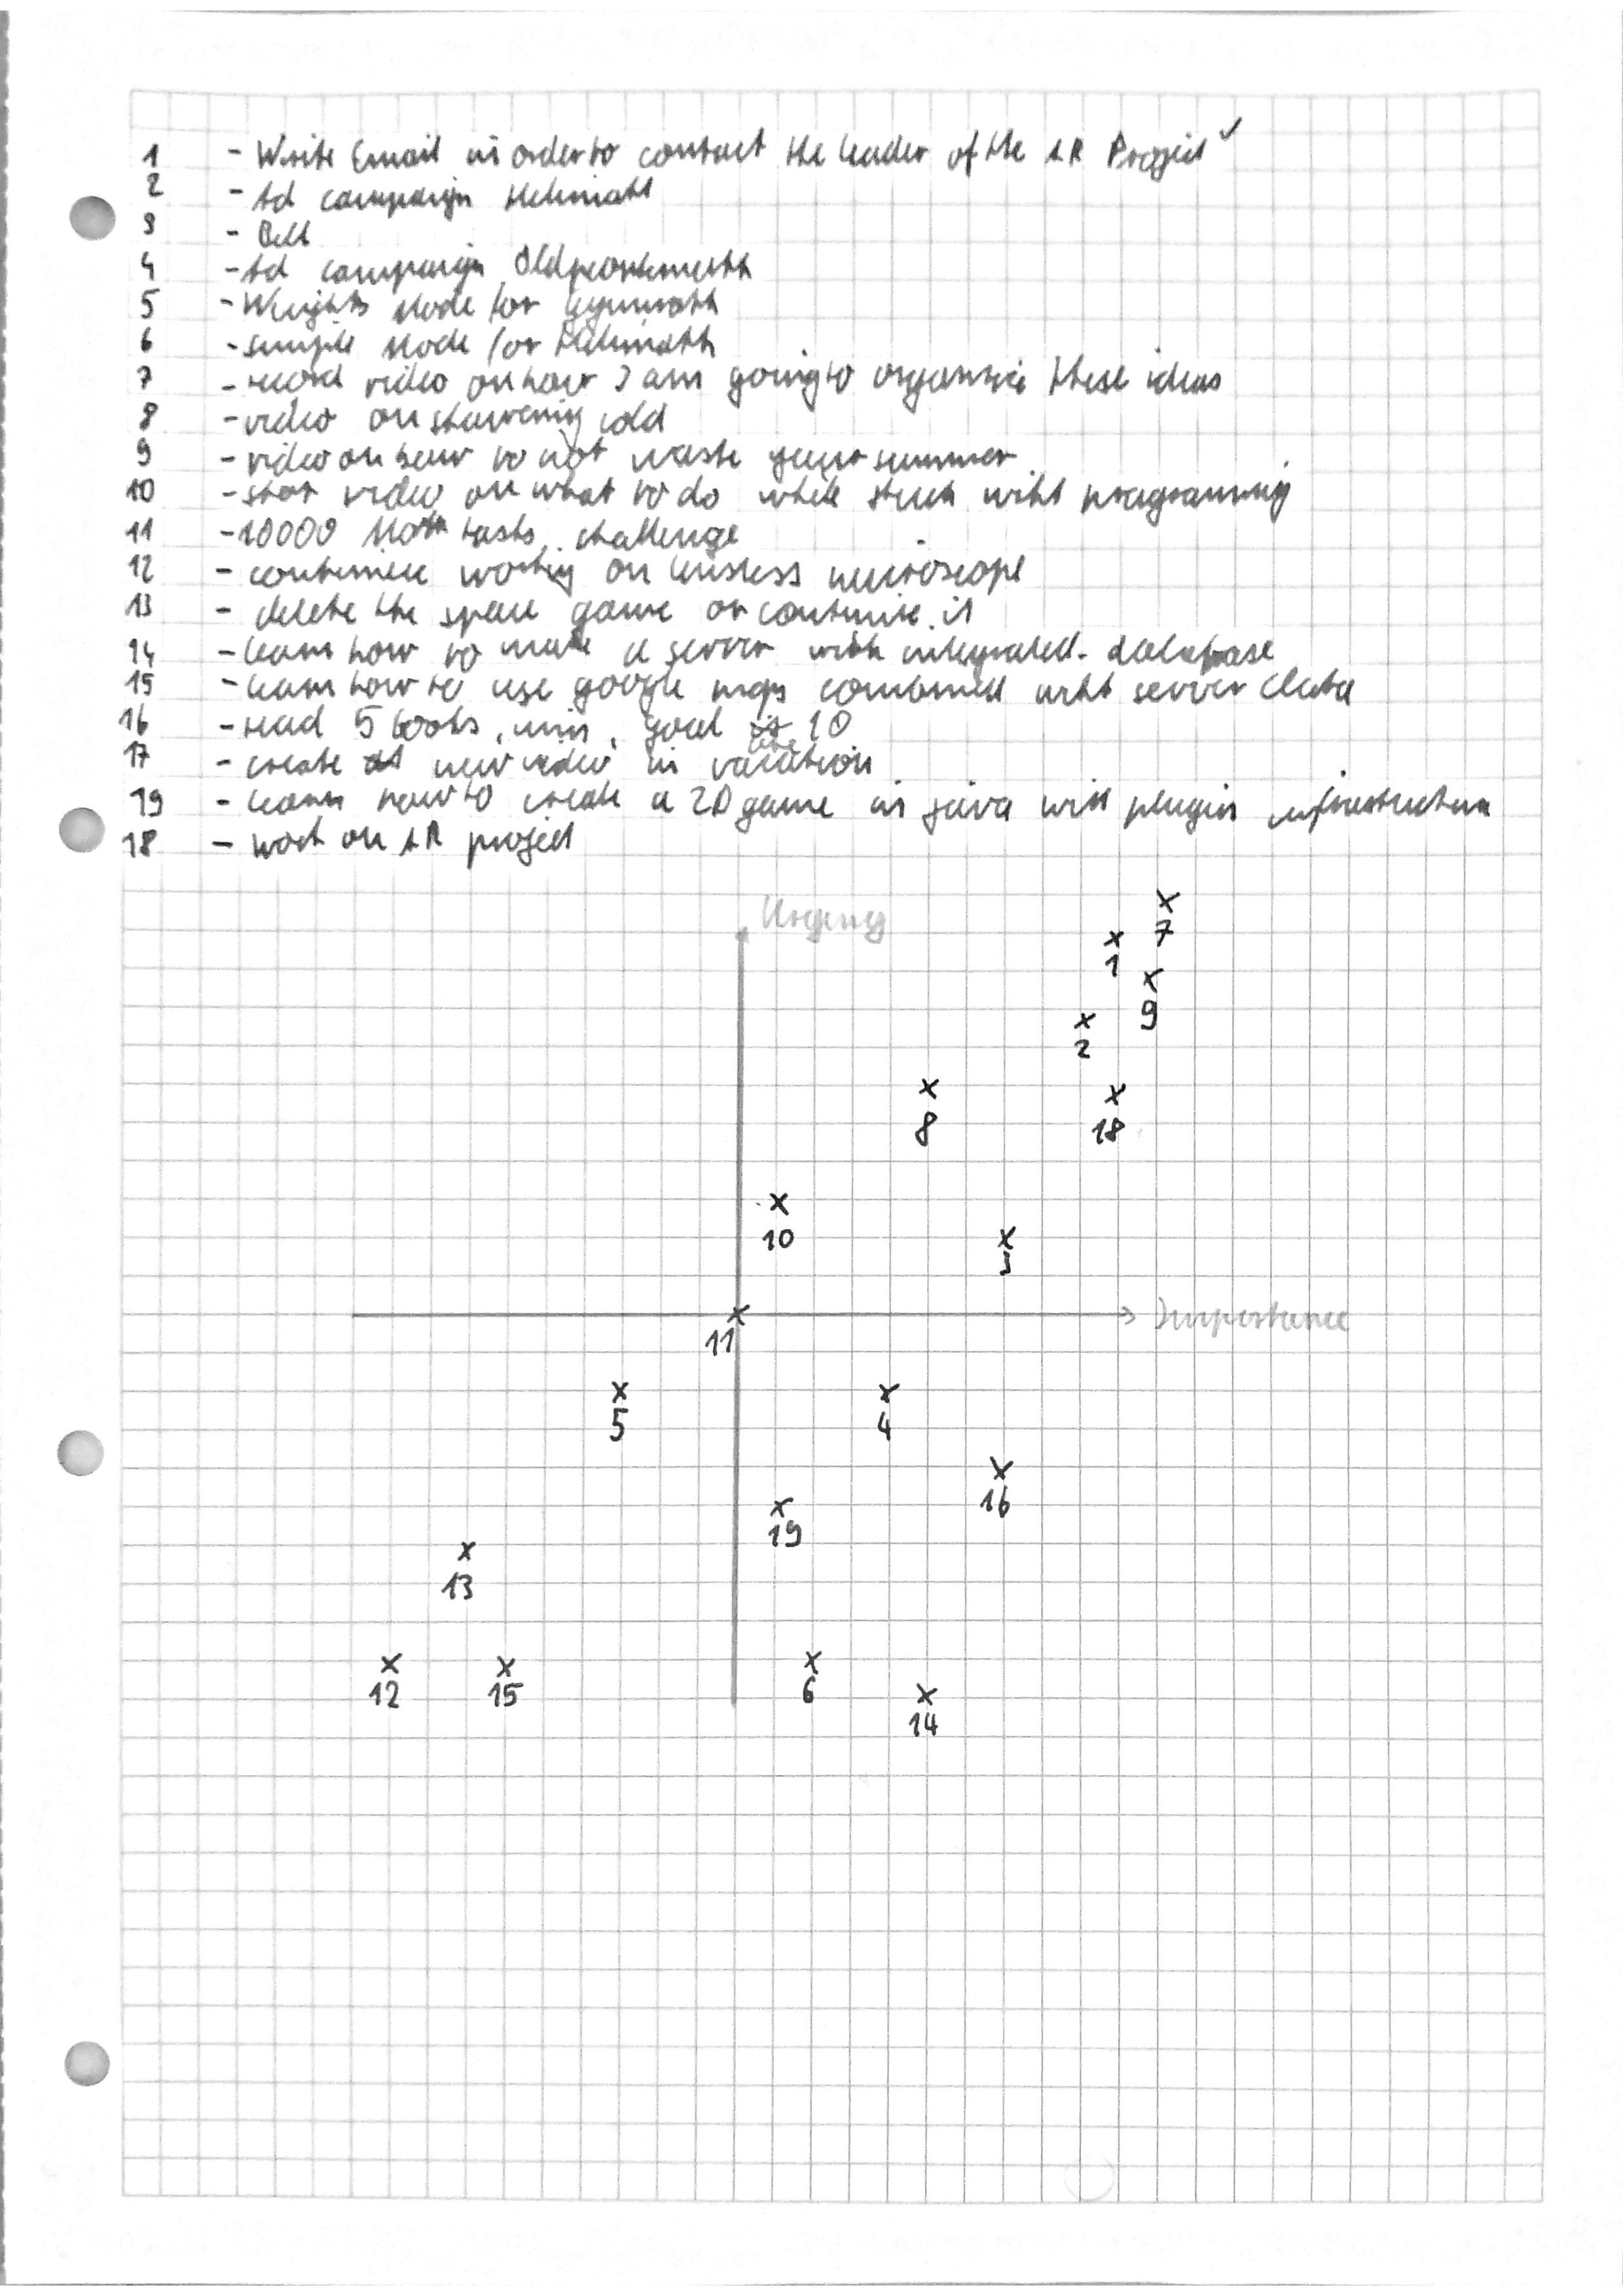 1 - Write Email in order to contact the leader of the AR Project ✓
2 - Ad campaign
3 -
4 - Ad campaign
5 - Weights Mode for Gymmath
6 - simple Mode for
7 - record video on how I am going to organize these ideas
8 - video on showering cold
9 - video on how to not waste your summer
10 - video on what to do while stuck wiht programming
11 - 10000 Math tasks challenge
12 - continue working on lensless microscope
13 - delete the space game or continue it
14 - learn how to make a server with integrated database
15 - learn how to use google maps combined wiht server data
16 - read 5 books, min, goal is 10
17 - create new video in vacation
19 - learn how to create a 2D game in java with plugin infrastructure
18 - work on AR project
Urgency
x
7
x
1
x
9
x
2
x
8
x
18
x
10
x
3
Importance
x
11
x
5
x
4
x
16
x
19
x
13
x
12
x
15
x
6
x
14